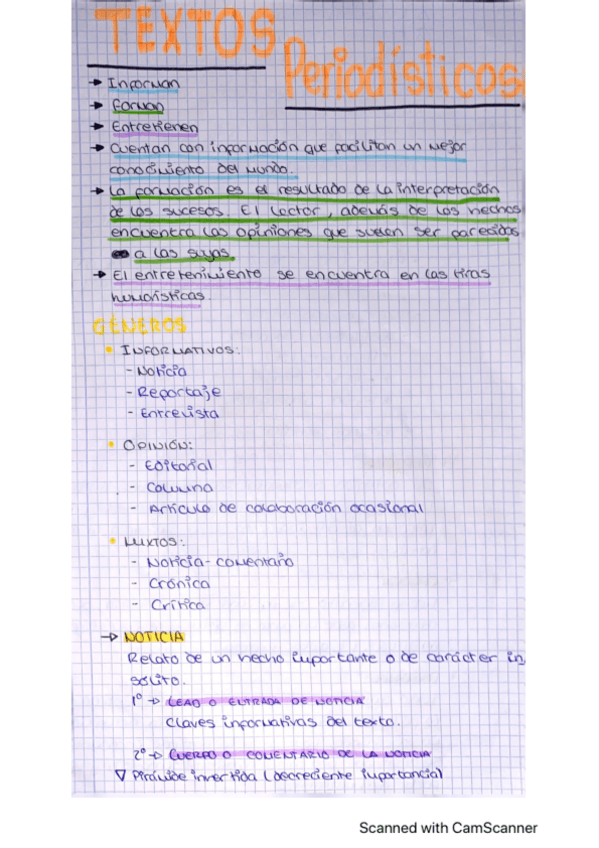 TEXTOS
Periodísticos
→ Informan
→ Forman
→ Entretienen
→ Cuentan con información que facilitan un mejor
conocimiento del mundo.
→ La formación es el resultado de la interpretación
de los sucesos. El lector, además de los hechos
encuentra las opiniones que suelen ser parecidas
a las suyas.
→ El entretenimiento se encuentra en las tiras
humorísticas.
GÉNEROS
• INFORMATIVOS:
- Noticia
- Reportaje
- Entrevista
• OPINIÓN:
- Editorial
- Columna
- Artículo de colaboración ocasional
• MIXTOS:
- Noticia-comentario
- Crónica
- Crítica
→ NOTICIA
Relato de un hecho importante o de carácter in
sólito.
1º → LEAD O ENTRADA DE NOTICIA
Claves informativas del texto.
2º → CUERPO O COMENTARIO DE LA NOTICIA
▽ Pirámide invertida (decreciente importancia)
Scanned with CamScanner